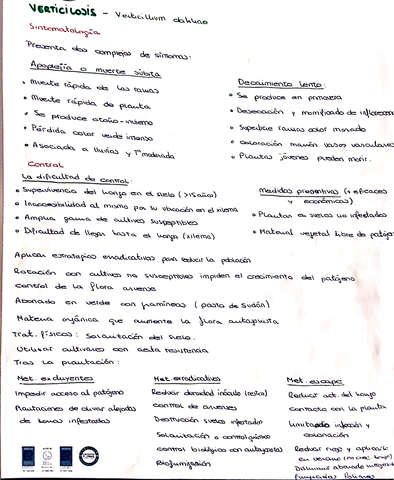 VERTICILOSIS - Verticillium dahliae
Sintomatología
Presenta dos complejos de síntomas:
Apoplejía o muerte súbita
• Muerte rápida de las ramas
• Muerte rápida de planta
• Se produce otoño-invierno
• Pérdida color verde intenso
• Asociada a lluvias y Tª moderada
Decaimiento lento:
• Se produce en primavera
• Desecación y momificado de inflorescen
• Superficie ramas color morado
• coloración marrón vasos vasculares
• Plantas jóvenes pueden morir.
Control
La dificultad de control:
• Supervivencia del hongo en el suelo (>15años)
• Inaccesibilidad al mismo por su ubicación en el xilema
• Amplia gama de cultivos susceptibles
• Dificultad de llegar hasta el hongo (xilema)
Medidas preventivas (+ eficaces
y económicas)
• Plantar en suelos no infestados
• Material vegetal libre de patóge
Aplicar estrategias erradicativas para reducir la población
Rotación con cultivos no susceptibles impiden el crecimiento del patógeno
control de la flora arvense
Abonado en verde con gramíneas (pasto de Sudán)
Materia orgánica que aumente la flora antagonista
Trat. físicos: Solarización del suelo.
Utilizar cultivares con cierta resistencia
Tras la plantación:
Met. excluyentes
Impedir acceso al patógeno
Plantaciones de olivar alejadas
de zonas infestadas
Met. erradicativos
Reducir densidad inóculo (restos)
control de arvenses
Destrucción suelos infestados
Solarización o control químico
control biológico con antagonistas
Biofumigación
Met. escape
Reducir act. del hongo
contacto con la planta
Limitada infección y
colonización
Reducir riego y aplicarlo
en verano
Disminuir abonado nitrogenado
Fungicidas foliares